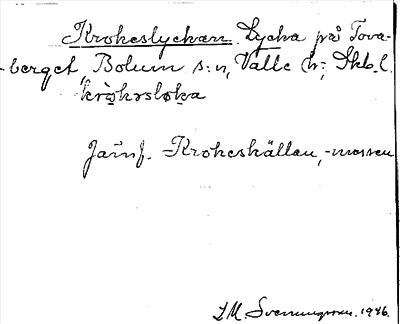 Krokeslyckan. Lycka på Tova-
berget, Bolum s:n, Valle h:, Skb.l.
kròkɔsløka
Jämf. Krokeshällan, -mossen
S.M. Svenungsson. 1946.